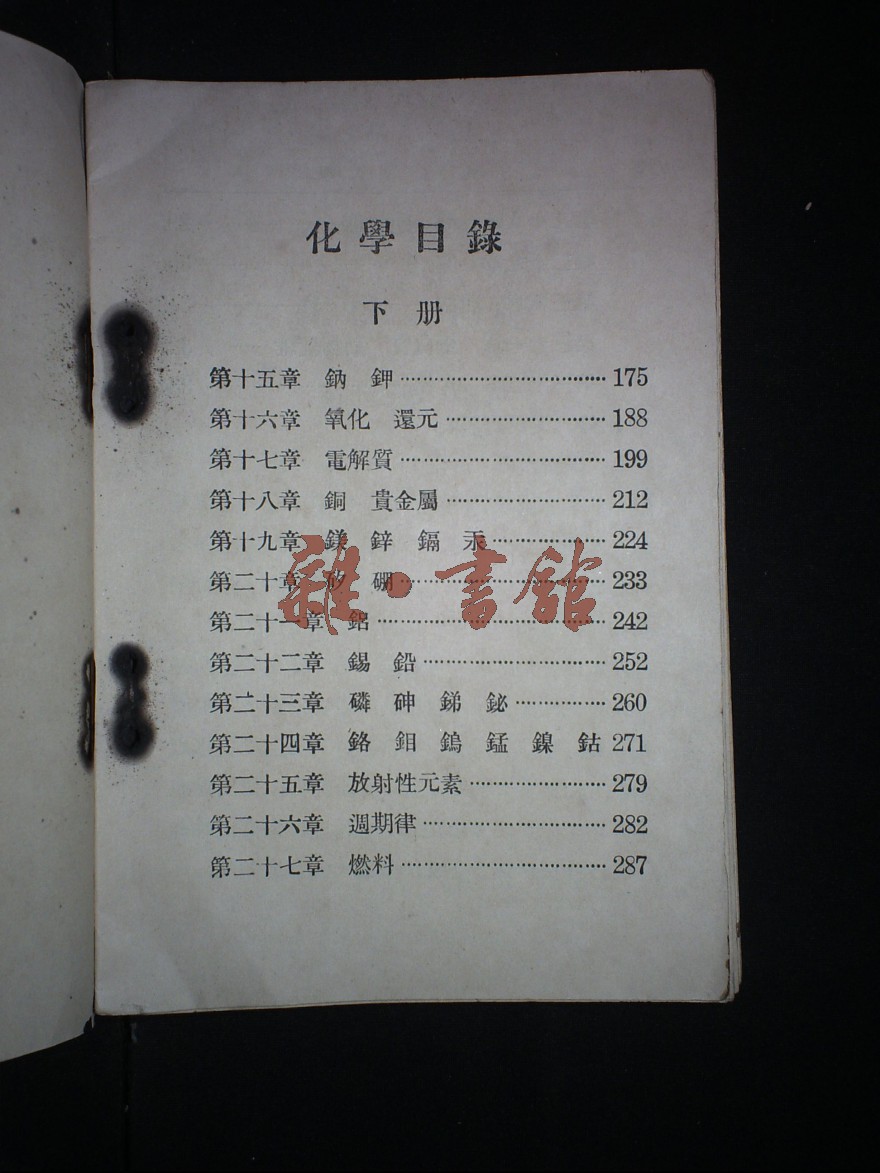 化學目錄
下册
第十五章 鈉 鉀 175
第十六章 氧化 還元 188
第十七章 電解質 199
第十八章 銅 貴金屬 212
第十九章 鎂 鋅 鎘 汞 224
第二十章 矽 硼 233
第二十一章 鋁 242
第二十二章 錫 鉛 252
第二十三章 磷 砷 銻 鉍 260
第二十四章 鉻 鉬 鎢 錳 鎳 鈷 271
第二十五章 放射性元素 279
第二十六章 週期律 282
第二十七章 燃料 287
雜·書館